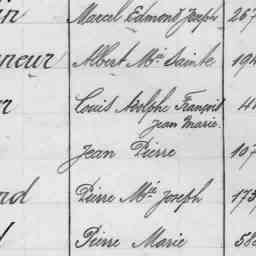 Marcel Edmond Joseph 267
neur Albert Mie Sainte 194
Louis Adolphe François
Jean Marie.
Jean Pierre 107
nd Pierre Mie Joseph 175
Pierre Marie 58